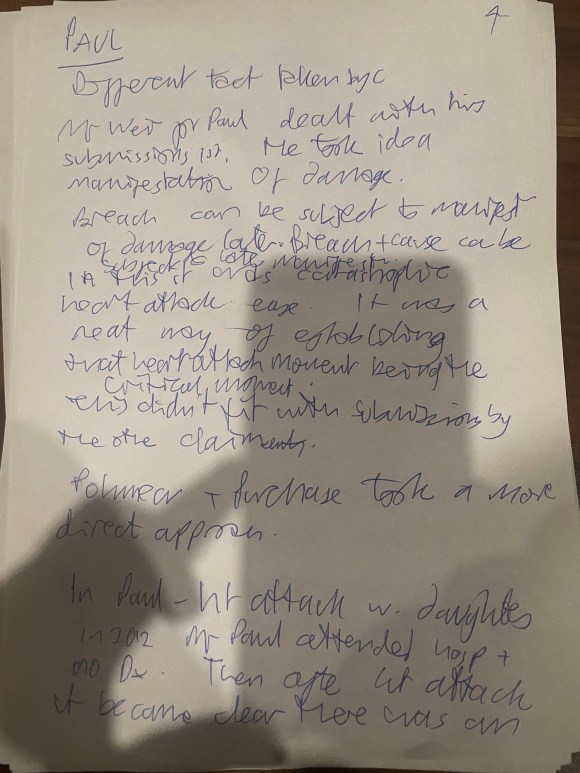 4
PAUL
Different fact
Mr Weir for Paul dealt with his
submissions 1st. He took idea
manifestation of damage.
Breach can be subject to manifest
of damage late. Breach + cause can be
subject to late manifest.
this it was catastrophic
heart attack case. It was a
neat way of establishing
that heart attack moment being the
critical moment.
This didn't fit with submissions by
the othe claiments.
Polmear + Purchase took a more
direct approach.
In Paul - ht attack w. daughters
in 2012 Mr Paul attended hosp +
no Dx. Then afte ht attack
it became clear there was an